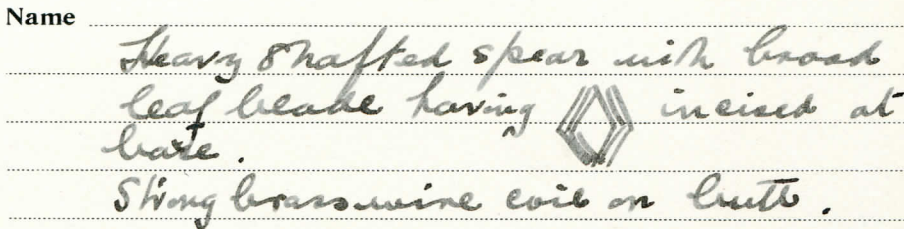 Name
Heavy shafted spear with broad
leaf blade having incised at
base.
Strong brass wire coil on butt.